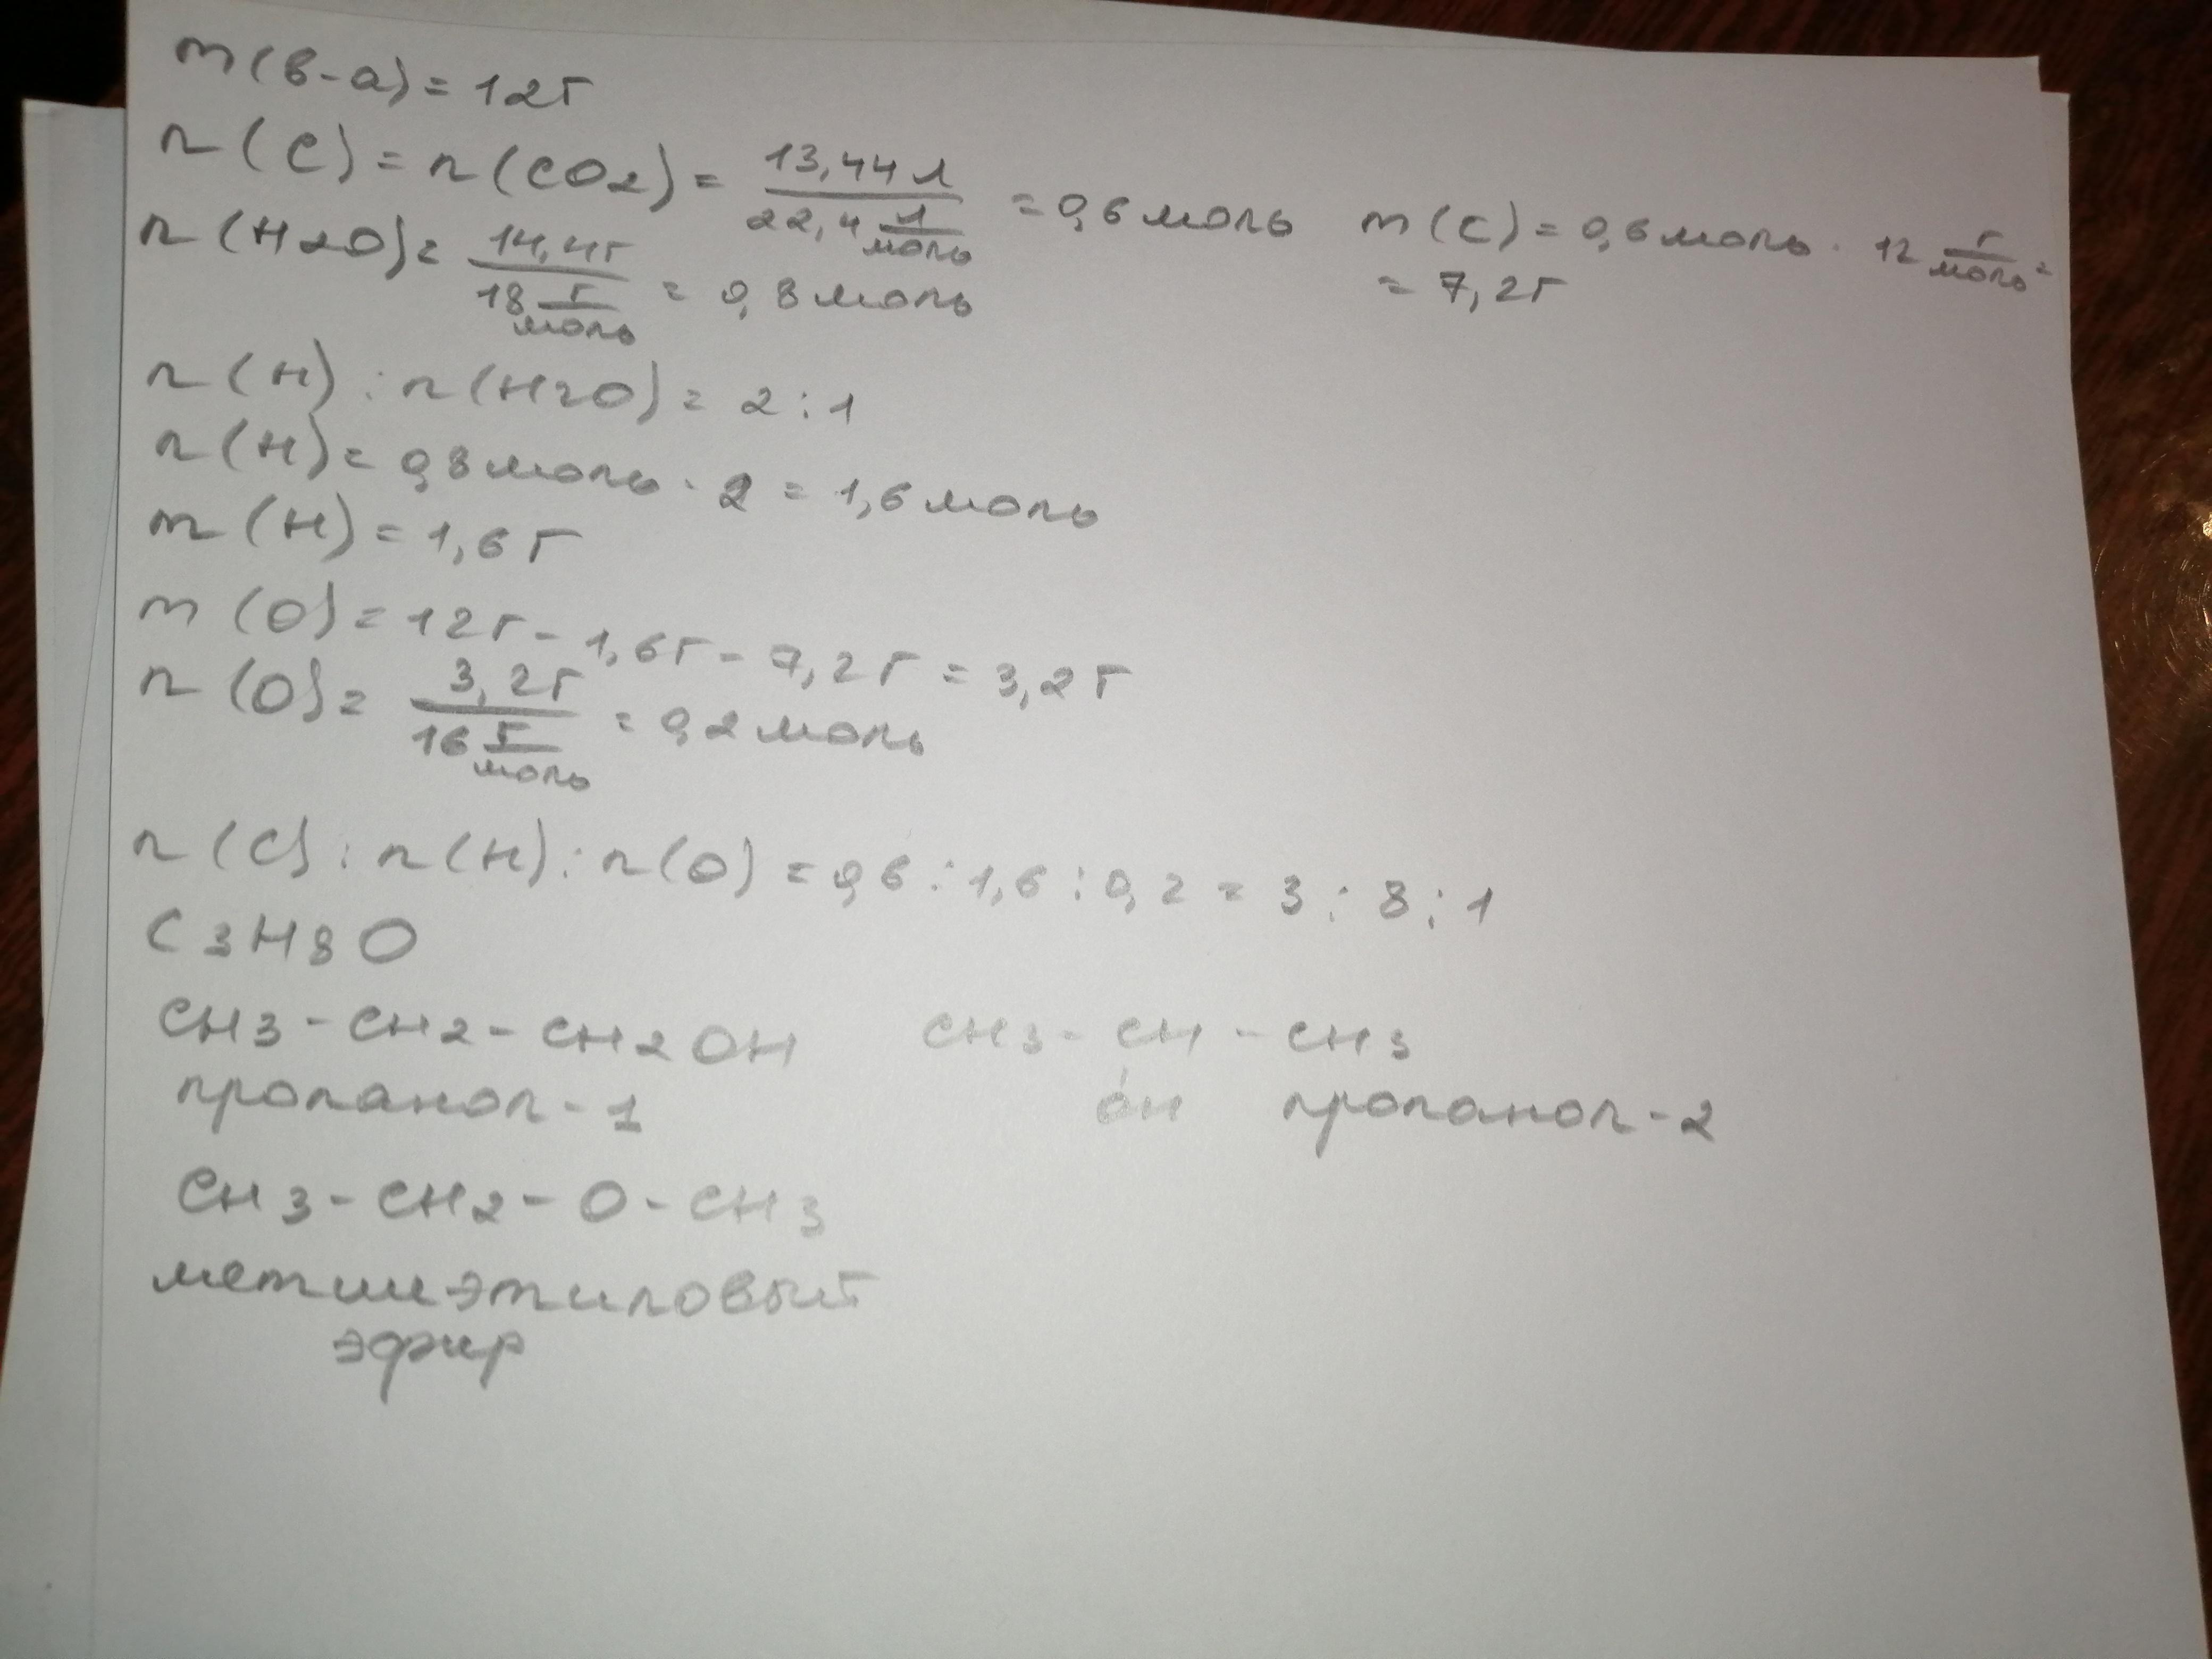 m(в-а)=12г
n(C)=n(CO2)= 13,44л / 22,4 л/моль =0,6моль m(C)=0,6моль· 12 г/моль=
= 7,2г
n(H2O)= 14,4г / 18 г/моль = 0,8моль
n(H):n(H2O)= 2:1
n(H)= 0,8моль·2 = 1,6моль
m(H)=1,6г
m(O)=12г-1,6г-7,2г=3,2г
n(O)= 3,2г / 16 г/моль =0,2моль
n(C):n(H):n(O)=0,6:1,6:0,2=3:8:1
C3H8O
CH3-CH2-CH2OH CH3-CH-CH3
пропанол-1 OH пропанол-2
CH3-CH2-O-CH3
метилэтиловый
эфир